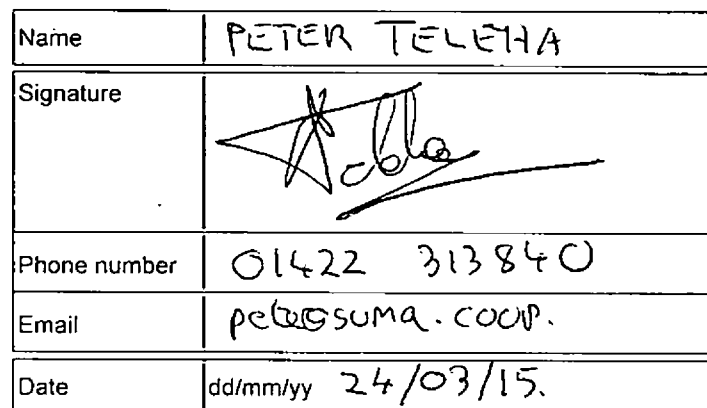 Name PETER TELEHA
Signature
Phone number 01422 313840
Email pete@suma.coop.
Date dd/mm/yy 24/03/15.